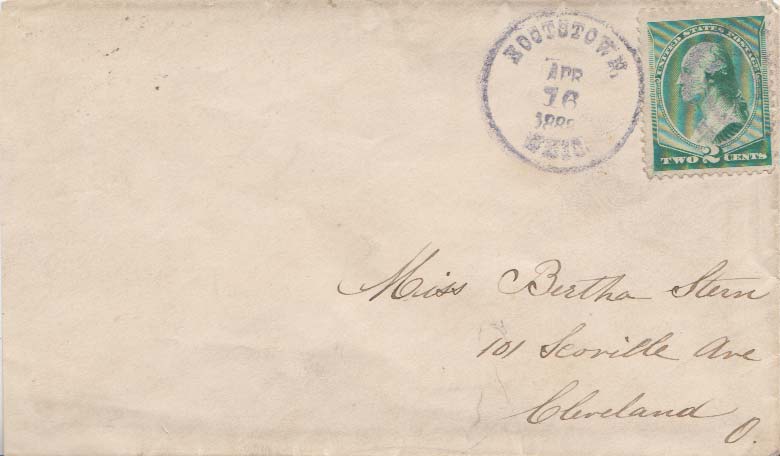 ROOTSTOWN,
APR
16
OHIO.
UNITED STATES POSTAGE
TWO 2 CENTS
Miss Bertha Stern
101 Scoville Ave
Cleveland
O.